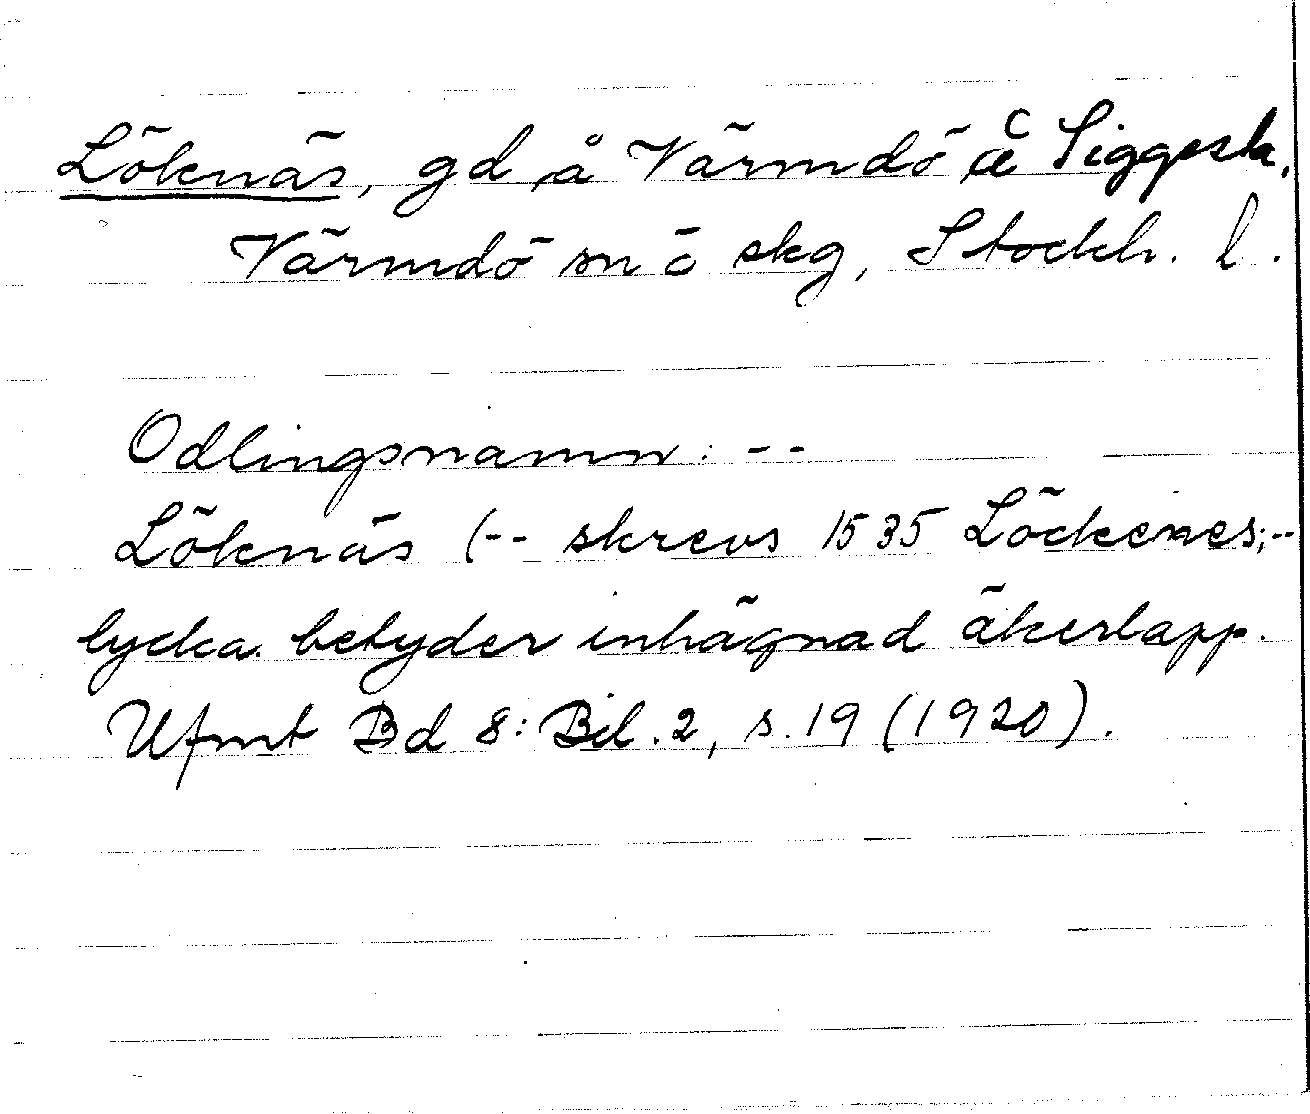 Löknäs, gd å Värmdö
Värmdö sn ö skg, Stockh. l.
Odlingsnamn: --
Löknäs (-- skrevs 1535 Löckenes; --
lycka betyder inhägnad åkerlapp.
Ufmt Bd 8: Bil. 2, s. 19 (1920).